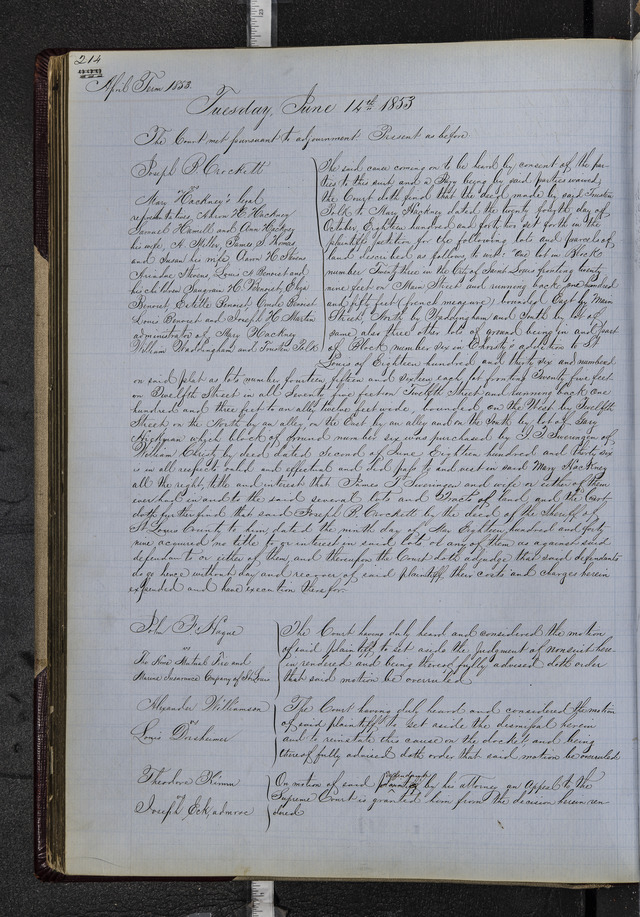 214
April Term 1853.
Tuesday, June 14th 1853
The Court met pursuant to adjournment Present as before
Joseph P. Crockett
vs
Mary Hackney's legal
representatives, Aaron H. Hackney
Samuel Hamill and Ann Hackney
his wife, A. Miler, James S. Thomas
and Susan his wife, Aaron H. Stevens
Ariadne Stevens, Louis A Bennet and
his children Bennett, Eliza
Bennet, Estelle Bennet, Bennet
Louis Bennet and Joseph H. Martin
administrator of Mary Hackney
William Waddingham and Trusten Polk
The said cause coming on to be heard by consent of the par-
ties to this suit and a Jury being by said parties waived,
the Court doth find that the deed made by said Trusten
Polk to Mary Hackney dated the twenty fourth day of
October, Eighteen hundred and forty two set forth in the
plaintiffs petition for the following lots and parcels of
land described as follows to wit: one lot in Block
number Twenty three in the City of Saint Louis fronting twenty
nine feet on Main Street and running back one hundred
and fifty feet (french measure) bounded East by Main
Street, North by Waddingham and South by lot of
same, also three other lots of ground being in and part
of Block number six in Christy's addition to St
Louis of Eighteen hundred and thirty six and numbered
on said plat as lots number fourteen fifteen and sixteen each lot fronting Twenty five feet
on Twelfth Street in all Seventy five feet on Twelfth Street and running back one
hundred and three feet to an alley twelve feet wide, bounded on the West by Twelfth
Street on the North by an alley, on the East by an alley and on the South by lot of
Hickman which block of ground number six was purchased by J. T. Sweringen of
William Christy by deed dated second of June Eighteen hundred and thirty six
is in all respect valid and effectual and did pass to and vest in said Mary Hackney
all the right, title and interest that James T. Sweringen and wife or either of them
ever had in and to the said several lots and tracts of land, and the Court
doth further find that said Joseph P. Crockett by the deed of the Sheriff of
St Louis County to him dated the ninth day of May Eighteen hundred and forty
nine acquired no title to or interest in said lots or any of them as against said
defendants or either of them, and thereupon the Court doth adjudge that said defendants
do go hence without day and recover of said plaintiff their costs and charges herein
expended and have execution therefor.
John F. Hague
vs
The Nine Mutual Fire and
Marine Insurance Company of St Louis
The Court having duly heard and considered the motion
of said plaintiff to set aside the judgment of nonsuit here-
in rendered and being thereof fully advised doth order
that said motion be overruled
Alexander Williamson
vs
Louis Dorsheimer
The Court having duly heard and considered the motion
of said plaintiff to set aside the dismissal herein
and to reinstate this cause on the docket and being
thereof fully advised doth order that said motion be overruled
Theodore Kimm
vs
Joseph Eck, admr &c
On motion of said defendant by his attorney an Appeal to the
Supreme Court is granted him from the decision herein ren-
dered